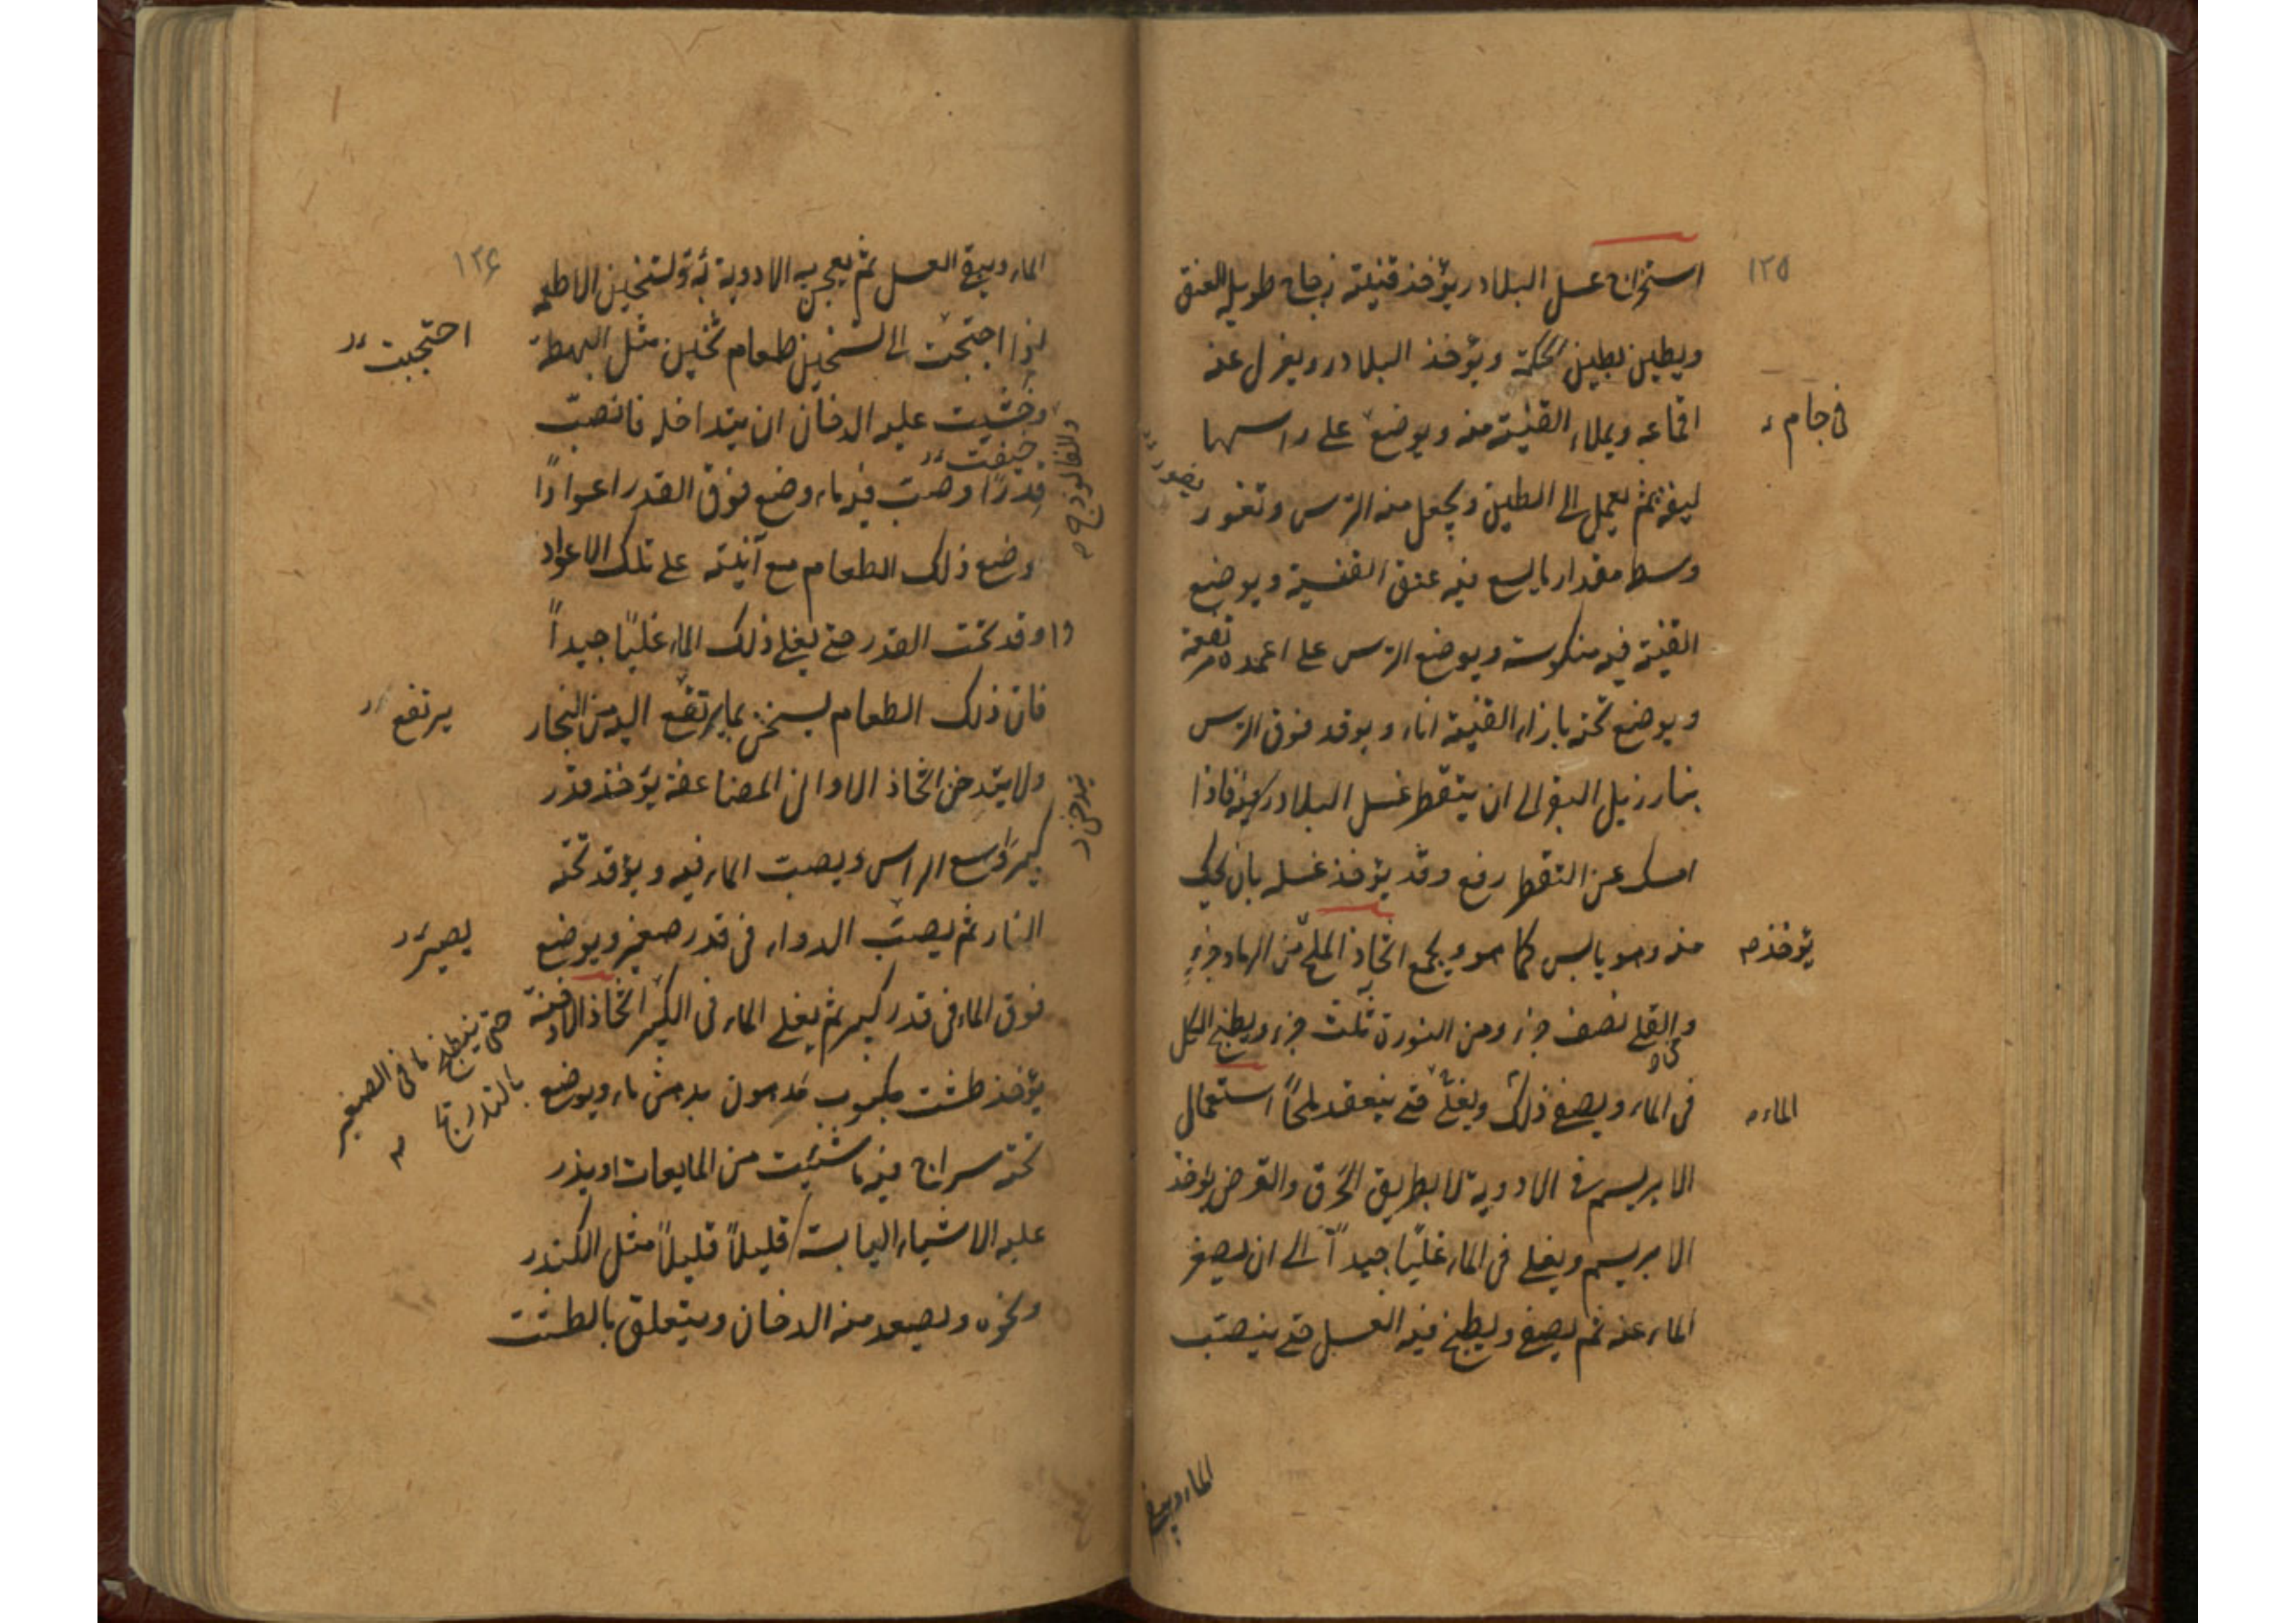 ١٢٥
استخراج عسل البلادر يؤخذ قنينة زجاج طويل العنق
ويطين بطين الحكمة ويؤخذ البلادر ويعزل عنه
اقماعه ويملاء القنينة منه ويوضع على راسها
في جام
ليفه ثم يعمل الى الطين ويجعل منه الترس وتغور
وسط مقدار ما يسع فيه عنق القنينة ويوضع
القنينة فيه منكوسة ويوضع الترس على اعمدة
ويوضع تحته بازاء القنينة اناء ويوقد فوق الترس
بنار زبل البقر الى ان يتقطر عسل البلادر فاذا
امسك عن التقطر رفع وقد يؤخذ عسله بان يحك
منه وهو يابس كما هو ويجمع اتخاذ الملح من الرماد جزء
يؤخذ
والقلي نصف جزء ومن النورة ثلث جزء ويطبخ الكل
في الماء ويصفى ذلك ويغلى حتى ينعقد ملحاً استعمال
الماء
الابريسم في الادوية لا بطريق الحرق والقرض يؤخذ
الابريسم ويغلى في الماء غلياً جيداً الى ان يصفر
الماء عنه ثم يصفى ويطبخ فيه العسل حتى ينصب
الماء ويبقى
١٢٦
الماء ويبقى العسل ثم يعجن به الادوية لتسخين الاطعمه
اذا احتجت الى تسخين طعام ثخين مثل البهطة
احتجبت
والفالوذج
وخشيت عليه الدخان ان يتداخله فانصب
خيفت
قدراً وصب فيه ماء وضع فوق القدر اعواداً
وضع ذلك الطعام مع آنيته على تلك الاعواد
واوقد تحت القدر حتى يغلي ذلك الماء غلياً جيداً
فان ذلك الطعام يسخن بما يرتفع اليه من البخار
يرتفع
ولا يتدخن اتخاذ الاواني المضاعفة يؤخذ قدر
يتدخن
كبير واسع الراس ويصب الماء فيه ويوقد تحته
النار ثم يصب الدواء في قدر صغير ويوضع
يصير
فوق الماء في قدر كبير ثم يغلى الماء في الكبير اتخاذ الادخنة
حتى ينطبخ ما في الصغير
بالتدريج
يؤخذ طشت مكبوب مدهون بدهن ماء ويوضع
تحته سراج فيه ما شئت من المايعات او يذر
عليه الاشياء اليابسة قليلاً قليلاً مثل الكندر
ونحوه ويصعد منه الدخان ويتعلق بالطشت